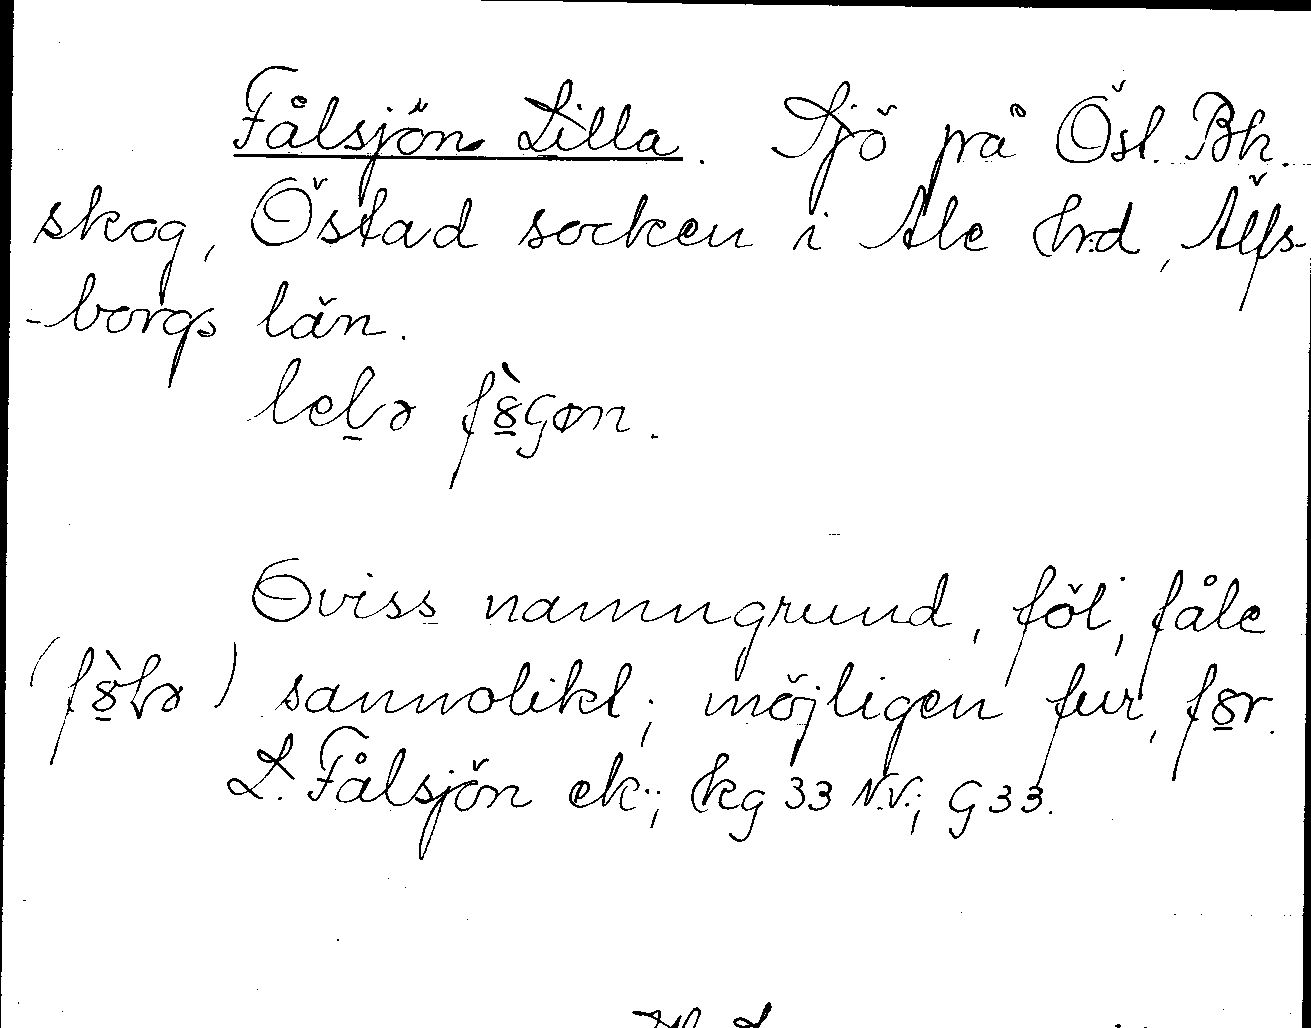 Fålsjön Lilla. Sjö på Ösl. Bh.
skog, Östad socken i Ale hrd, Älfs-
-borgs län.
Oviss namngrund, föl, fåle
sannolikt; möjligen fur, för.
L. Fålsjön ek.; hkg 33 N.V.; G 33.